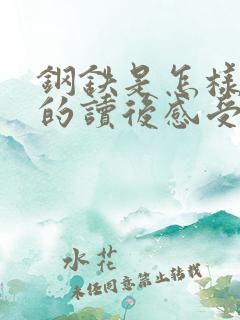 鋼鉄是怎樣
的讀後感受
水花
未經同意禁止轉載